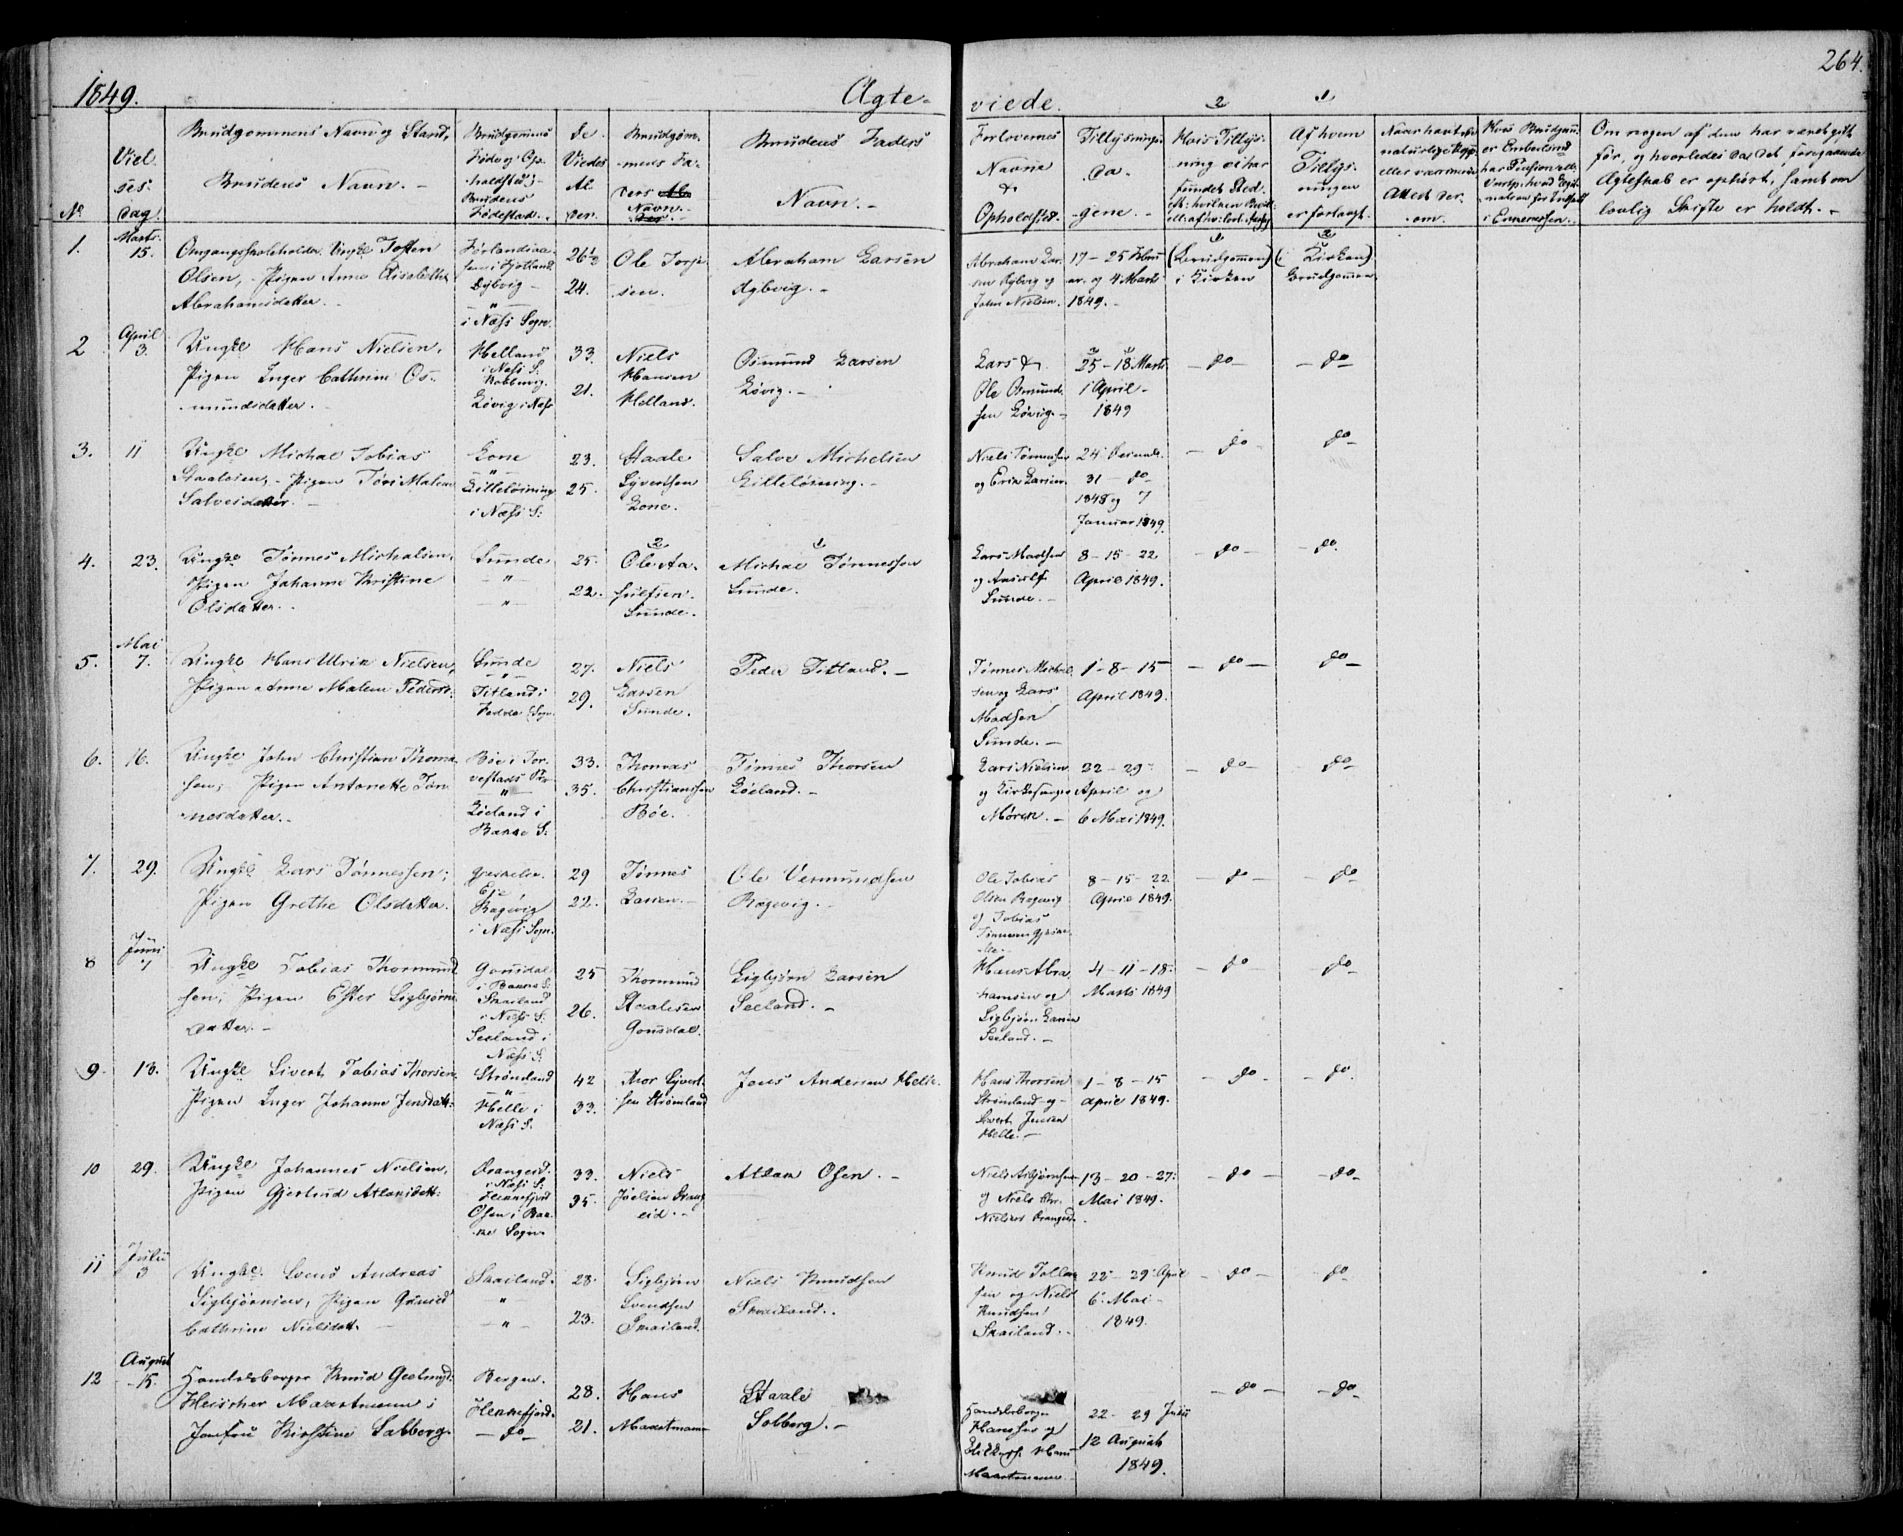 264.
1849.
Ægte-
viede.
2
1
No
Viel
ses.
dag.
Brudgommens Navn og Stand,
Brudens Navn. -
Brudgommens
Føde og Op-
holdssted;
Brudens
Fødestad.
De
Viedes
Al
der.
Brudgom-
mens Fa-
ders
Navn.
Brudens Faders
Navn. -
Forlovernes
Navne
&
Opholdsted.
Tillysnings
Da-
gene. -
Hvis Tillys-
ning ei har
fundet Sted
Af hvem
Tillys-
ningen
er forlangt.
Naar havt de
naturlige Kopp.
eller vaccinerede
Attest der-
om.
Hvis Brudgom.
er Embedsmd.
Om nogen af dem har været gift
før, og hvorledes da det foregaaende
Ægteskab er ophørt, samt om
lovlig Skifte er holdt. -
1.
Marts
15.
Omgangsskoleholder Ungkl Josten
Olsen, - Pigen Anne Elisabeth
Abrahamsdatter. -
i Fjotland
Dybvig -
"
i Næss Sogn
26½
24.
Ole Torje
sen.
Abraham Larsen
Dybvig. -
Abraham Lar
sen Dybvig og
John Nielsen.
17 - 25 Febru
ar. og 4 Marts
1849. -
(Brudgommen)
i Kirken
(i Kirken)
Brudgommen
2
April
3.
Ungkl Hans Nielsen,
Pigen Inger Cathrine Os-
mundsdatter. -
Helland
i Næss S.
Løvig i Næss
33.
21.
Niels
Hansen
Helland.
Osmund Larsen
Løvig. -
Lars &
Ole Osmund
sen Løvig. -
25 - 18 Marts
1 April -
1849
- do -
- do -
3.
11
Ungkl Michal Tobias
Staalesen, - Pigen Tøri Malene
Salvesdatter. -
Lone
"
Lilleløsning
i Næss S:
23.
25.
Staale
Syvertsen
Lone.
Salve Michelsen
Lilleløsning. -
Niels Tønnessen
og Erik Larsen.
24 Decemb.
31 - do
1848 og 7
Januar 1849.
- do -
do -
4.
23.
Ungkl Tønnes Michalsen,
Pigen Johanne Kristine
Olsdatter. -
Sunde
- " -
- " -
25.
22.
Ole Aa-
sulfsen.
Sunde.
Michal Tønnessen
Sunde.
Lars Madsen
og Aasulf
Sunde. -
8 - 15 - 22
April 1849.
- do -
- do.
5.
Mai
7.
Ungkl Hans Ulrik Nielsen,
Pigen Anne Malene Peders:
Sunde
"
Titland i
Fedde Sogn.
27.
29.
Niels
Larsen
Sunde.
Peder Titland. -
Tønnes Michal
sen og Lars
Madsen
Sunde. -
1 - 8 - 15
April 1849.
- do -
do -
6.
16.
Ungkl John Christian Thoma
sen; Pigen Antonette Tøn
nesdatter. -
Bøe i Tor
vestads Pr
"
Løeland i
Bakke S.
33.
35.
Thomas
Christianssen
Bøe.
Tønnes Thorsen
Løeland. -
Lars Nielsen
og Kirkesanger
Møren. -
22 - 29
April og
6 Mai 1849.
- do -
- do -
7.
29.
Ungkl Lars Tønnessen;
Pigen Grethe Olsdatter.
Røgevig
i Næss Sogn.
29
22.
Tønnes
Larsen. -
Ole Vermundsen
Røgevig. -
Ole Tobias
Olsen Røgevig
og Tobias
8 - 15 - 22
April 1849.
- do -
do -
8
Juni
7
Ungkl Tobias Thormund
sen; Pigen Ester Sigbjørns
datter. -
Gousdal
i Bakke S.
Skailand
i Næss S.
Seeland i
Næss S.
25
26.
Thormund
Staalesen
Gousdal.
Sigbjørn Larsen
Seeland. -
Hans Abra
hamsen og
Sigbjørn Larsen
Seeland. -
4 - 11 - 18.
Marts 1849
- do -
do -
9.
13.
Ungkl Sivert Tobias Thorsen.
Pigen Inger Johanne Jensdatt:
Strømland
"
Helle i
Næss S.
42
33.
Thor Syvert
sen Strømland
Jens Andersen Helle.
Hans Thorsen
Strømland og
Sivert Jensen
Helle. -
1 - 8 - 15
April 1849.
- do -
- do.
10
29.
Ungkl Johannes Nielsen,
Pigen Gjertrud Atlaksdatt:
Drangeid.
i Næss S.
Flekkefjord
Osen i Bak
ke Sogn.
33.
35.
Niels
Joelsen Drang
eid. -
Atlak Osen. -
Niels Asbjørnsen
og Niels Chr.
Nielsen Drangeid.
13 - 20 - 27.
Mai 1849.
- do -
- do -
11
Julii
3
Ungkl. Svend Andreas
Sigbjørnsen, Pigen Gunild
Cathrine Nielsdatt. -
Skailand.
"
- " -
28.
23.
Sigbjørn
Svendsen
Skailand.
Niels Knudsen
Skailand. -
Knud Tollak
sen og Niels
Knudsen
Skailand. -
22 - 29 April
6 Mai -
1849.
- do -
- do
12
August
15.
Handelsborger Knud Geelmuyd.
Fleischer Maartmann;
Jomfru Kirstine Salberg.
Bergen.
Flekkefjord.
- do -
28.
21.
Hans
Maartmann
Staale
Solberg. -
Handelsborger
Maartmann
22 - 29 Julii
12 August
1849.
- do -
- do -